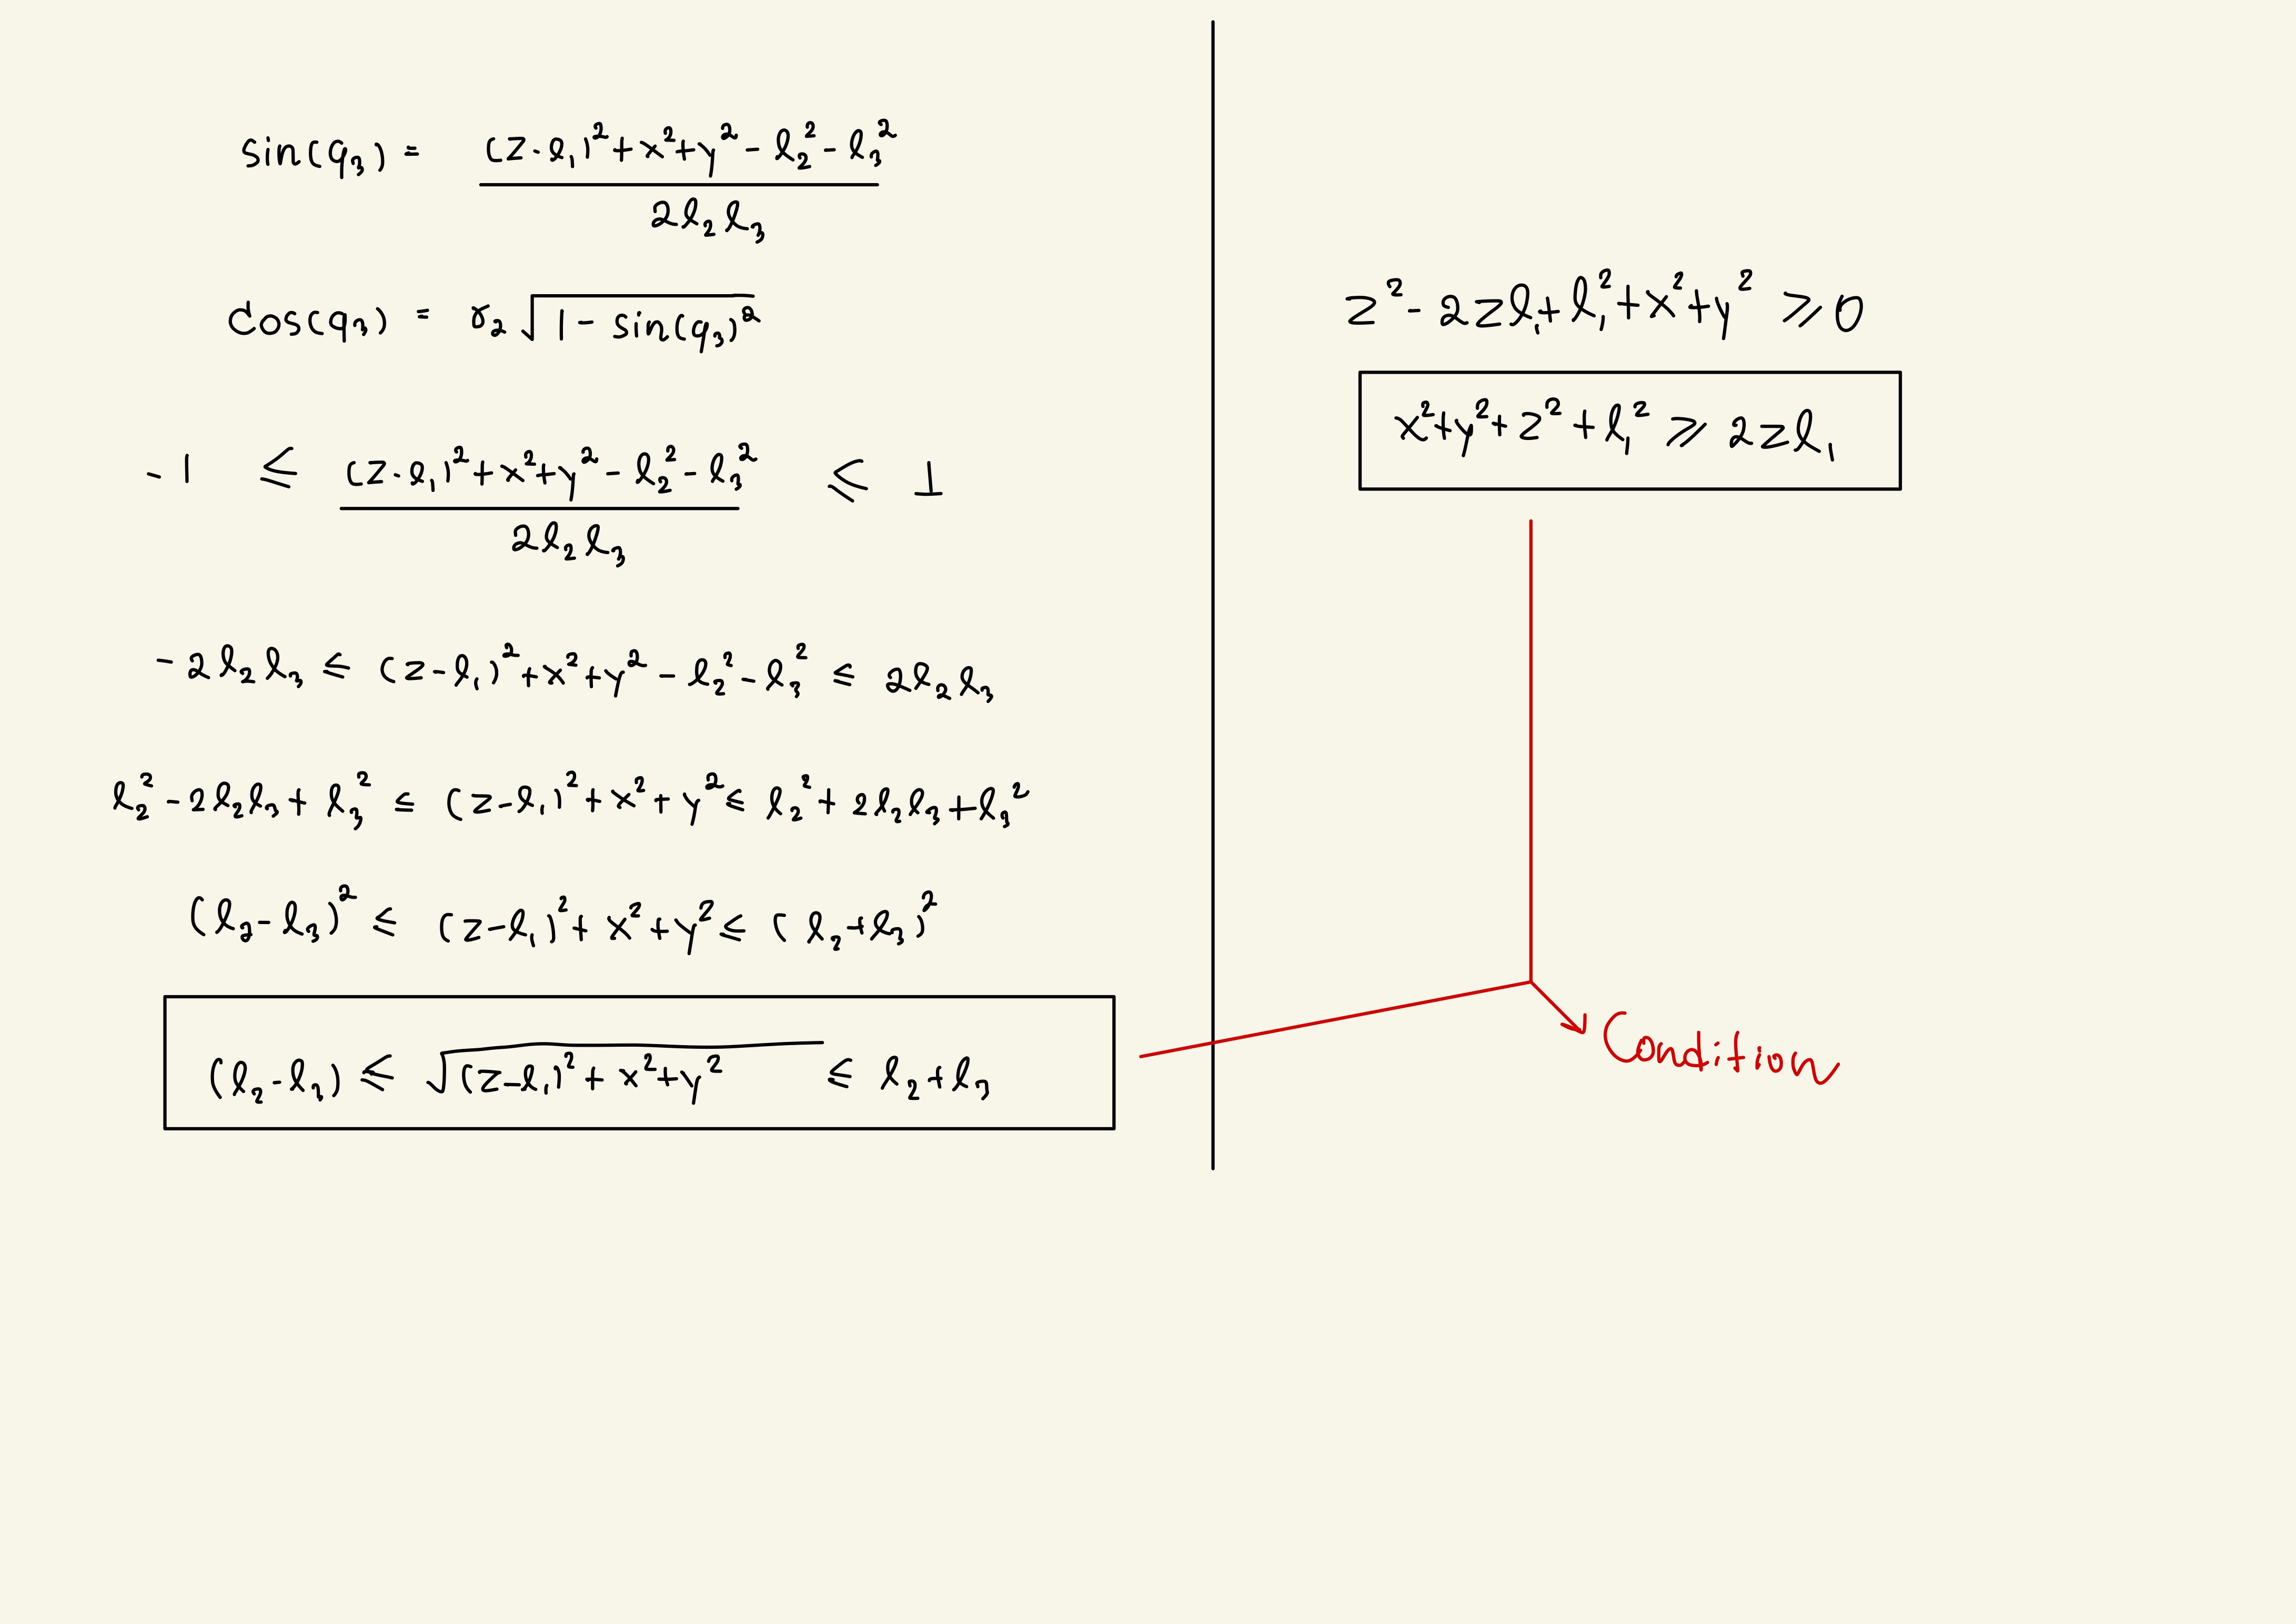 sin(q₃) = ((z - l₁)² + x² + y² - l₂² - l₃²) / (2l₂l₃)
cos(q₃) = γ₂ √(1 - sin(q₃)²)
-1 ≤ ((z - l₁)² + x² + y² - l₂² - l₃²) / (2l₂l₃) ≤ 1
-2l₂l₃ ≤ (z - l₁)² + x² + y² - l₂² - l₃² ≤ 2l₂l₃
l₂² - 2l₂l₃ + l₃² ≤ (z - l₁)² + x² + y² ≤ l₂² + 2l₂l₃ + l₃²
(l₂ - l₃)² ≤ (z - l₁)² + x² + y² ≤ (l₂ + l₃)²
(l₂ - l₃) ≤ √((z - l₁)² + x² + y²) ≤ l₂ + l₃
z² - 2zl₁ + l₁² + x² + y² ≥ 0
x² + y² + z² + l₁² ≥ 2zl₁
Condition